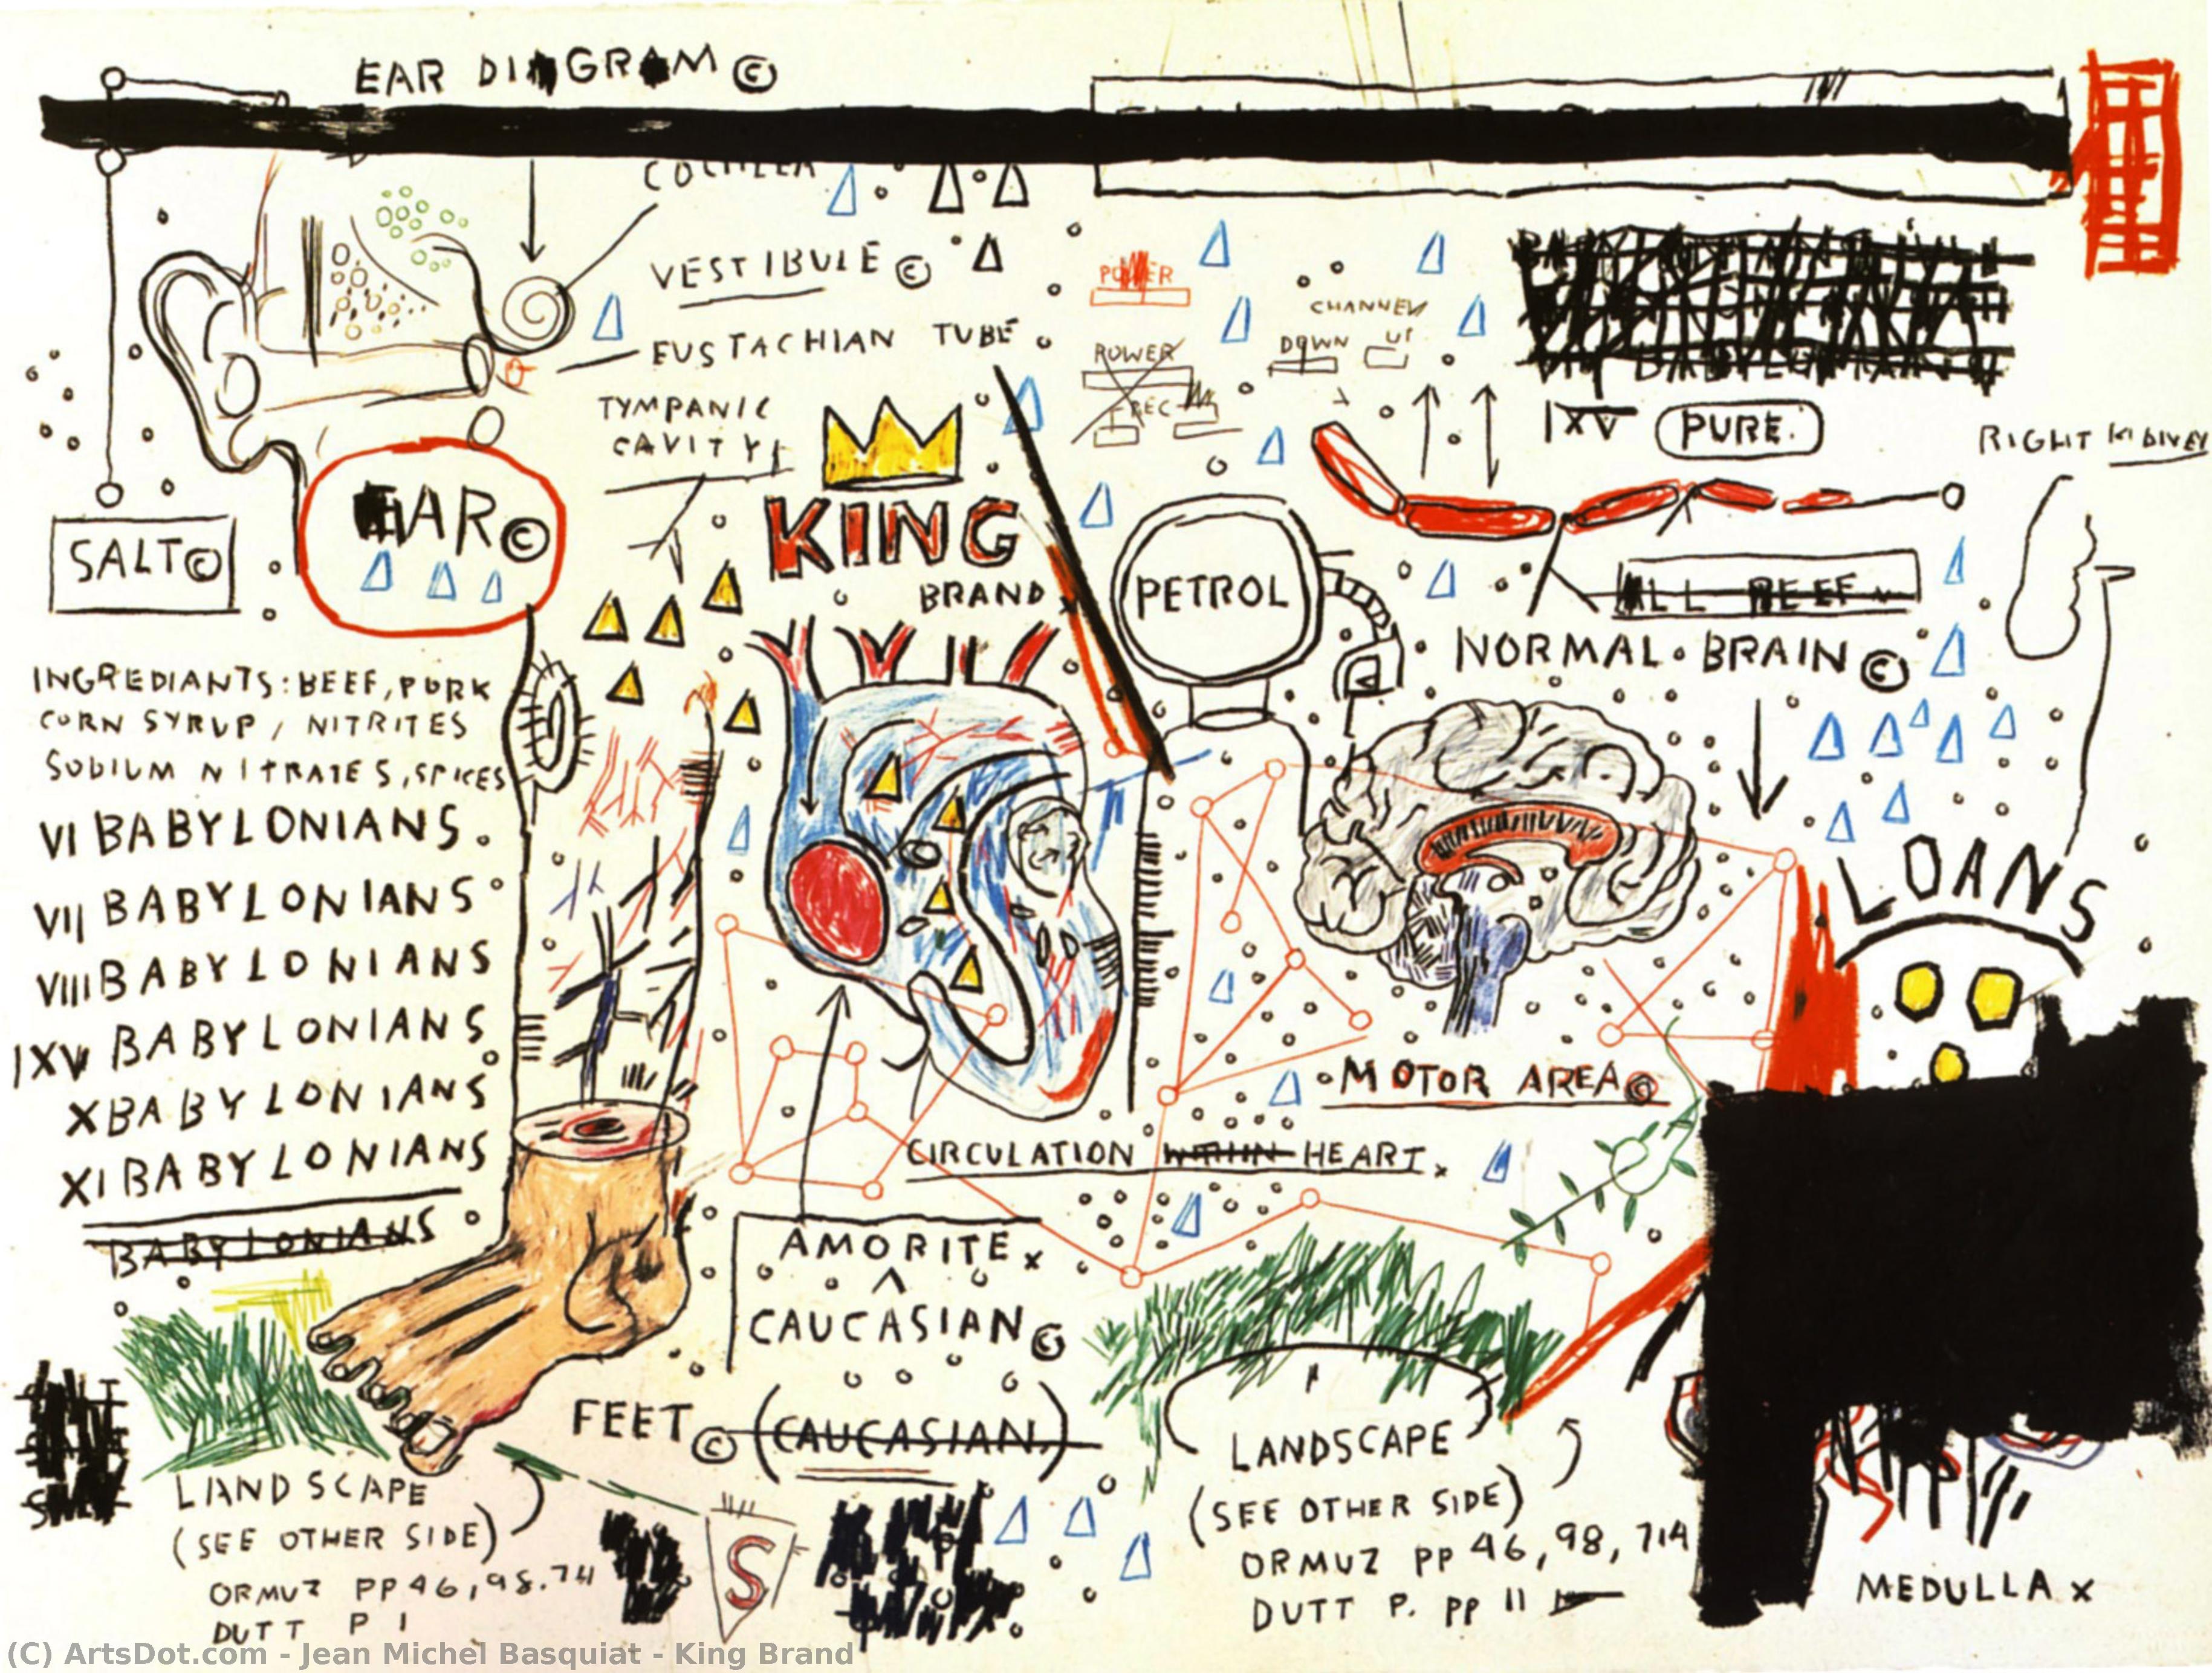 EAR DIAGRAM ©
COCHLEA
VESTIBULE ©
EUSTACHIAN TUBE
TYMPANIC
CAVITY
EAR ©
SALT ©
KING
BRAND x
POWER
POWER
REC
CHANNEL
DOWN UP
IXV PURE.
RIGHT KIDNEY
PETROL
ALL BEEF
NORMAL · BRAIN ©
INGREDIANTS: BEEF, PORK
CORN SYRUP / NITRITES
SODIUM NITRATES, SPICES
VI BABYLONIANS.
VII BABYLONIANS
VIII BABYLONIANS
IXV BABYLONIANS
X BABYLONIANS
XI BABYLONIANS
BABYLONIANS
LOANS
MOTOR AREA ©
CIRCULATION WITHIN HEART x
AMORITE x
CAUCASIAN ©
FEET © (CAUCASIAN.)
LANDSCAPE
(SEE OTHER SIDE)
ORMUZ PP 46, 98. 74
DUTT P 1
S
LANDSCAPE
(SEE OTHER SIDE)
ORMUZ PP 46, 98, 714
DUTT P. PP 11
MEDULLA x
(C) ArtsDot.com - Jean Michel Basquiat - King Brand